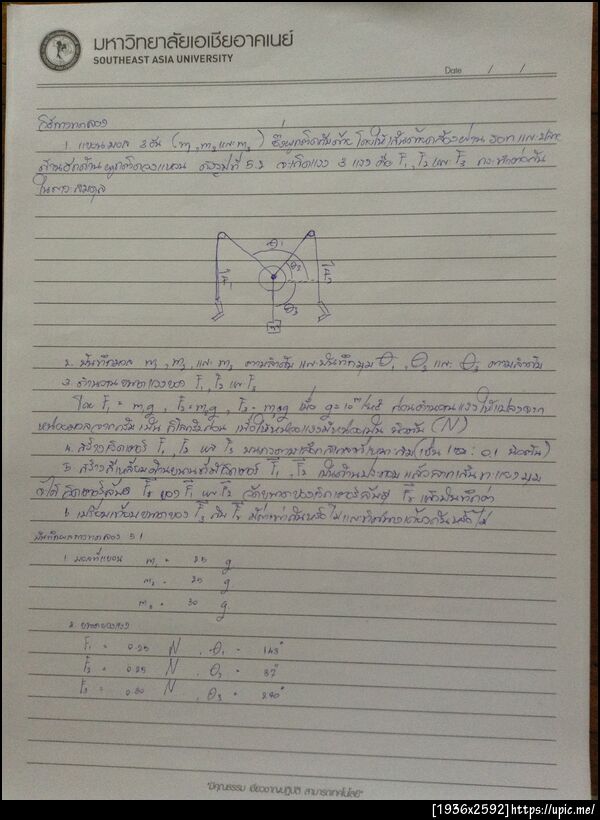 มหาวิทยาลัยเอเชียอาคเนย์
SOUTHEAST ASIA UNIVERSITY
Date / /
วิธีการทดลอง
1. แขวนมวล 3 อัน (m₁, m₂ และ m₃) ซึ่งผูกติดกับด้าย โดยให้เส้นด้ายคล้องผ่านรอก และปลาย
ด้านอีกด้านผูกติดวงแหวน ดังรูปที่ 5.2 จะเกิดแรง 3 แรง คือ F₁, F₂ และ F₃ กระทำต่อกัน
ในภาวะสมดุล
θ₁
θ₂
F₁
F₂
θ₃
2. บันทึกมวล m₁, m₂ และ m₃ ตามลำดับ และบันทึกมุม θ₁, θ₂ และ θ₃ ตามลำดับ
3. คำนวณขนาดแรงของ F₁, F₂ และ F₃
โดย F₁ = m₁g, F₂ = m₂g, F₃ = m₃g เมื่อ g = 10 m/s² ก่อนคำนวณแรงให้แปลงจาก
หน่วยมวลจากกรัม เป็น กิโลกรัมก่อน เพื่อให้หน่วยแรงมีหน่วยเป็น นิวตัน (N)
4. สร้างเวกเตอร์ F₁, F₂ และ F₃ บนกระดาษ (เช่น 1 ซม : 0.1 นิวตัน)
5. สร้างสี่เหลี่ยมด้านขนานที่มีเวกเตอร์ F₁, F₂ เป็นด้านประกอบ แล้วลากเส้นทะแยงมุม
จะได้เวกเตอร์ลัพธ์ ของ F₁ และ F₂ วัดขนาดของเวกเตอร์ลัพธ์ แล้วบันทึกค่า
6. เปรียบเทียบขนาดของ F₃ กับ มีค่าเท่ากันหรือไม่ และทิศทางเดียวกันหรือไม่
บันทึกผลการทดลอง 5.1
1. มวลที่แขวน m₁ = 25 g
m₂ = 25 g
m₃ = 30 g
2. ขนาดของแรง
F₁ = 0.25 N, θ₁ = 143°
F₂ = 0.25 N, θ₂ = 37°
F₃ = 0.30 N, θ₃ = 270°
"มีคุณธรรม เชี่ยวชาญปฏิบัติ สามารถเทคโนโลยี"
[1936x2592]https://upic.me/